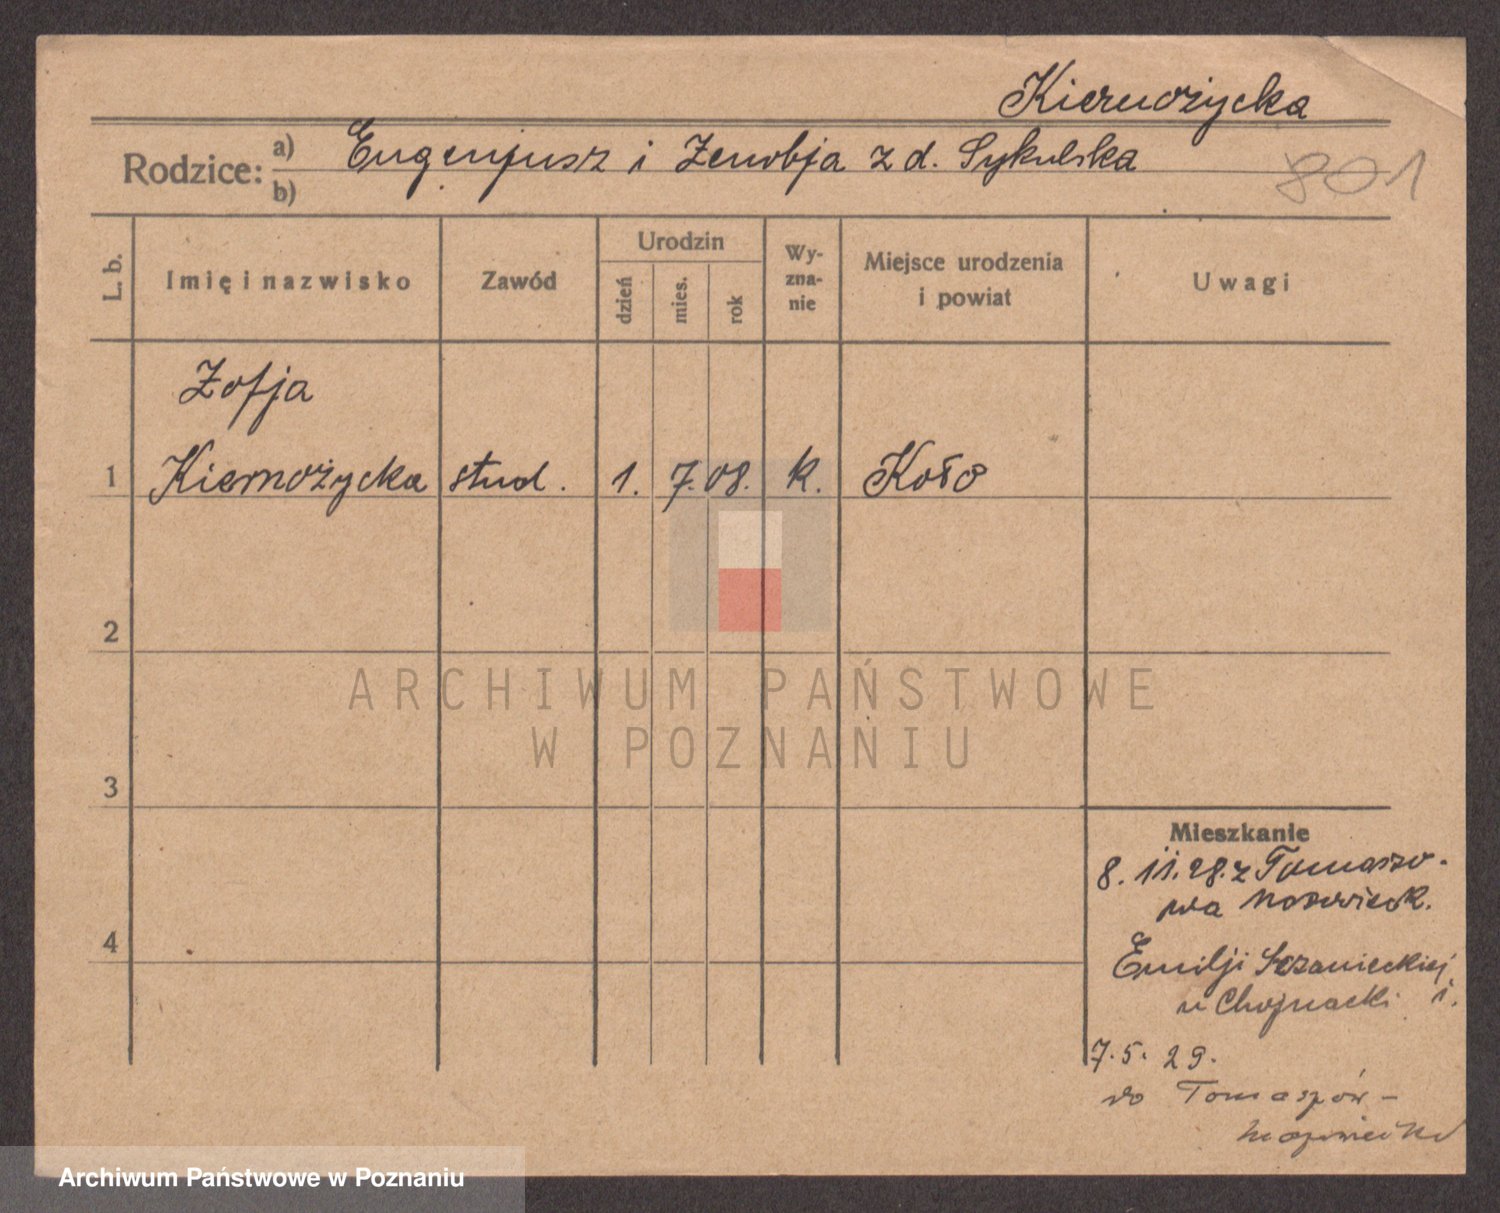 Kiernożycka
Rodzice: a) Eugenjusz i Zenobja z d. Sykulska
b)
801
L. b.
Imię i nazwisko
Zawód
Urodzin
dzień
mies.
rok
Wy-
zna-
nie
Miejsce urodzenia
i powiat
Uwagi
Zofja
1 Kiernożycka stud. 1. 7. 08. k. Koło
2
3
4
ARCHIWUM PAŃSTWOWE
W POZNANIU
Mieszkanie
8. 11. 28. z Tomaszo-
wa mazowieck.
Emilji Sczanieckiej
u Chojnacki
7. 5. 29.
do Tomaszów-
mazowiecki
Archiwum Państwowe w Poznaniu